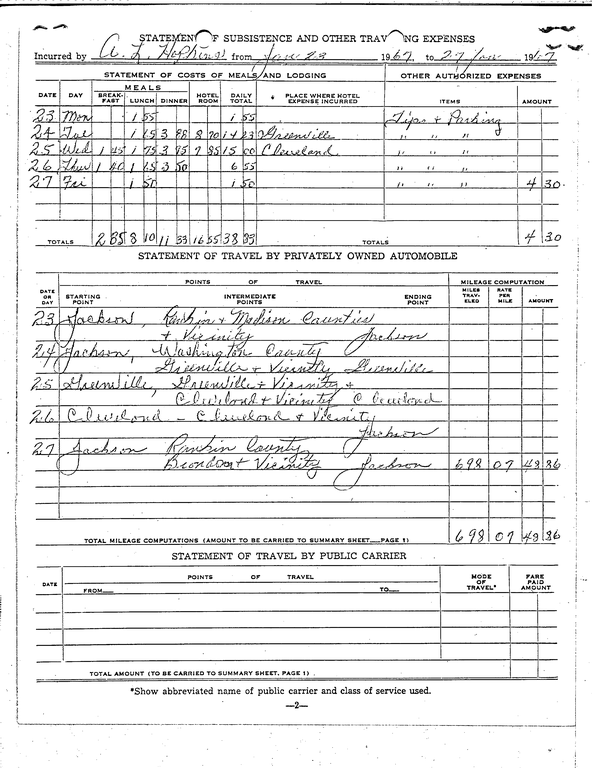 STATEMENT OF SUBSISTENCE AND OTHER TRAVELING EXPENSES
Incurred by A. L. Hopkins from Jan 23 1967 to 27 Jan 1967
STATEMENT OF COSTS OF MEALS AND LODGING OTHER AUTHORIZED EXPENSES
DATE DAY MEALS BREAK-FAST LUNCH DINNER HOTEL ROOM DAILY TOTAL PLACE WHERE HOTEL EXPENSE INCURRED ITEMS AMOUNT
23 Mon 1 55 1 55 Tips & Parking
24 Tue 1 65 3 88 8 70 14 23 Greenville " " "
25 Wed 1 45 1 75 3 95 7 85 15 00 Cleveland " " "
26 Thur 1 40 1 65 3 50 6 55 " " "
27 Fri 1 50 1 50 " " " 4 30
TOTALS 2 85 8 10 11 33 16 55 38 83 TOTALS 4 30
STATEMENT OF TRAVEL BY PRIVATELY OWNED AUTOMOBILE
DATE OR DAY POINTS OF TRAVEL MILEAGE COMPUTATION
STARTING POINT INTERMEDIATE POINTS ENDING POINT MILES TRAV-ELED RATE PER MILE AMOUNT
23 Jackson, Rankin & Madison Counties
& Vicinity Jackson
24 Jackson, Washington County
Greenville & Vicinity Greenville
25 Greenville, Greenville & Vicinity &
Cleveland & Vicinity Cleveland
26 Cleveland - Cleveland & Vicinity
Jackson
27 Jackson Rankin County
Brandon & Vicinity Jackson 698 07 48 86
TOTAL MILEAGE COMPUTATIONS (AMOUNT TO BE CARRIED TO SUMMARY SHEET PAGE 1) 698 07 48 86
STATEMENT OF TRAVEL BY PUBLIC CARRIER
DATE POINTS OF TRAVEL MODE OF TRAVEL* FARE PAID AMOUNT
FROM TO
TOTAL AMOUNT (TO BE CARRIED TO SUMMARY SHEET, PAGE 1)
*Show abbreviated name of public carrier and class of service used.
—2—